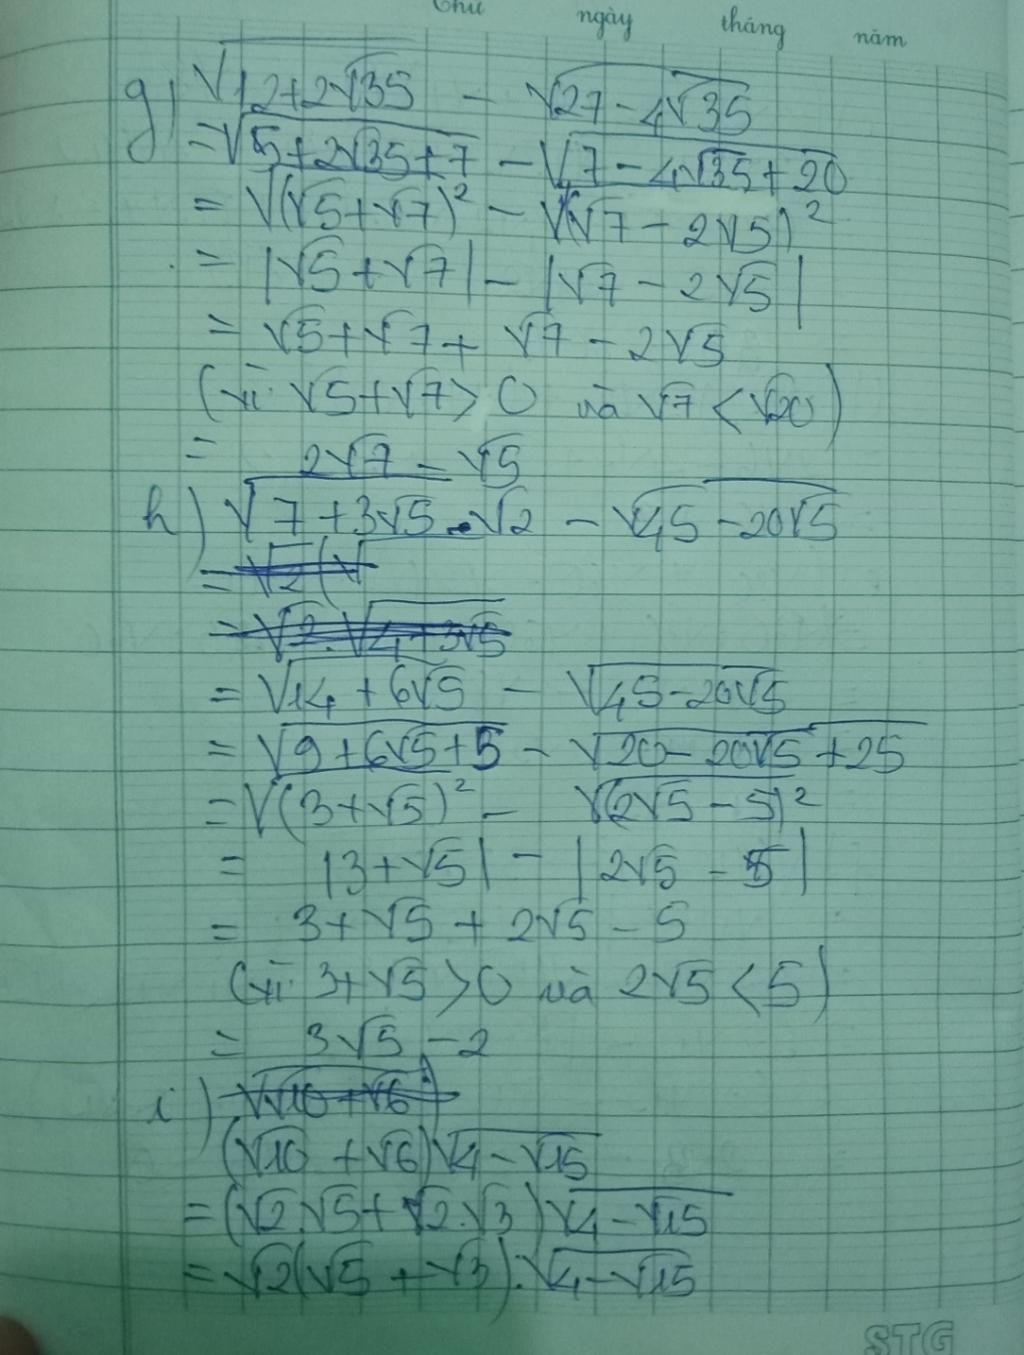 Thứ ngày tháng năm
g) √(12+2√35) - √(27-4√35)
= √(5+2√35+7) - √(7-4√35+20)
= √(√5+√7)² - √(√7-2√5)²
= |√5+√7| - |√7-2√5|
= √5+√7+ √7-2√5
(vì √5+√7>0 và √7<√20)
= 2√7-√5
h) √(7+3√5).√2 - √(45-20√5)
= √2(√
= √2.√(4+3√5)
= √(14+6√5) - √(45-20√5)
= √(9+6√5+5) - √(20-20√5+25)
= √(3+√5)² - √(2√5-5)²
= |3+√5| - |2√5-5|
= 3+√5+2√5-5
(vì 3+√5>0 và 2√5<5)
= 3√5-2
i) √(√10+√6)
(√10+√6)√(4-√15)
= (√2.√5+√2.√3)√(4-√15)
= √2(√5+√3).√(4-√15)
STG